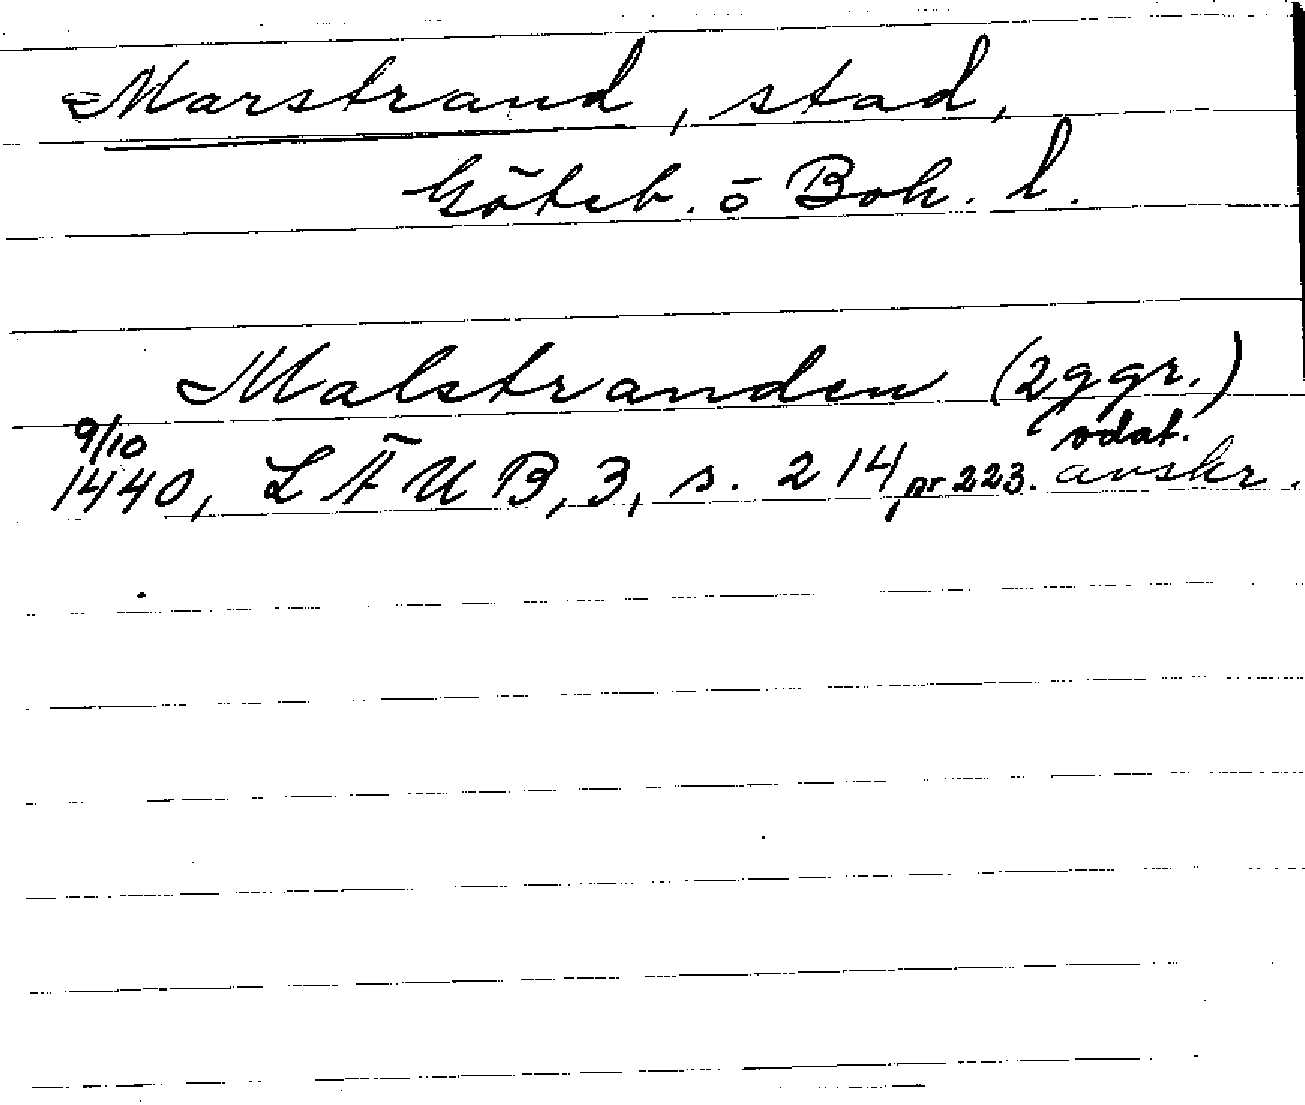 Marstrand, stad,
Göteb. o Boh. l.
Malstranden (2 ggr.)
9/10 odat.
1440, LÄUB, 3, s. 214, nr 223. avskr.